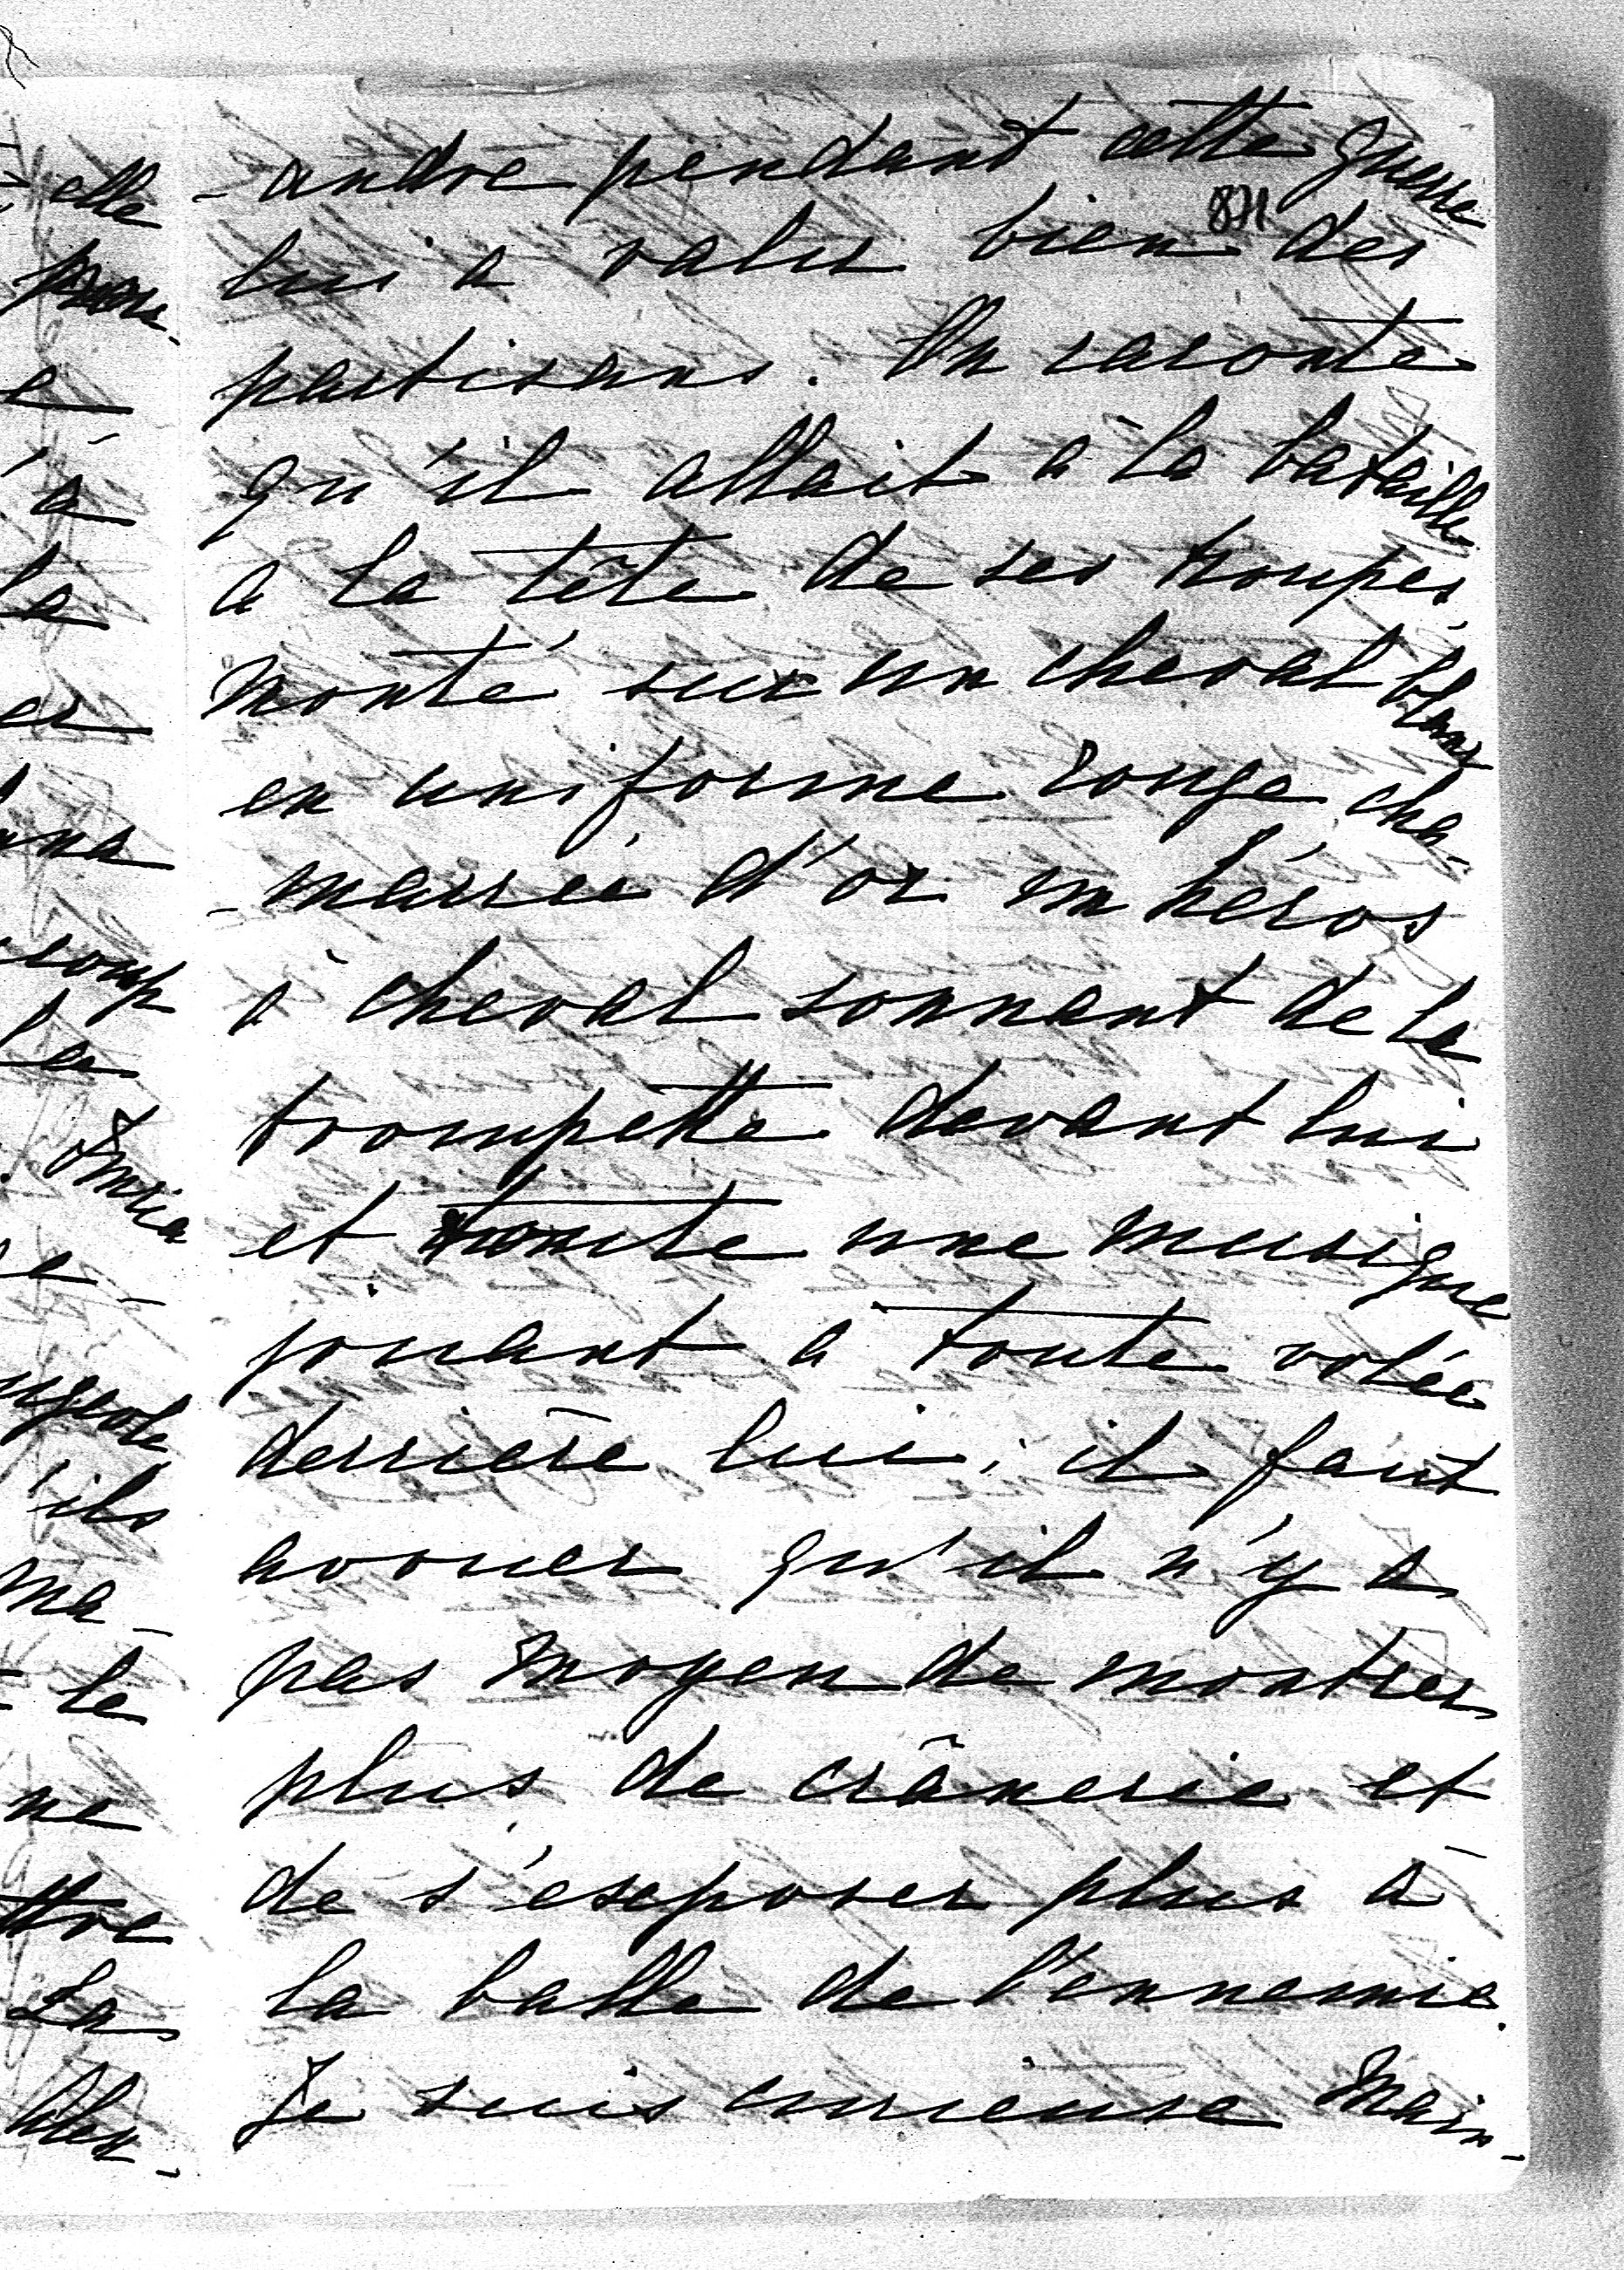 - andre pendant cette guerre
871
lui a valu bien des
partisans. On raconte
qu'il allait à la bataille
a la tête de ses troupes,
monté sur un cheval blanc
en uniforme rouge cha-
- marrée d'or un héros
à cheval sonnant de la
trompette devant lui
et toute une musique
jouant a toute volée
derrière lui; il faut
avouer qu'il n'y a
pas moyen de montrer
plus de crânerie et
de s'exposer plus à
la balle de l'ennemie.
Je suis curieuse main-
elle
e
'à
la
er
coup
la
e -
'ils
ma -
le
ne
ttre
La
Alex -